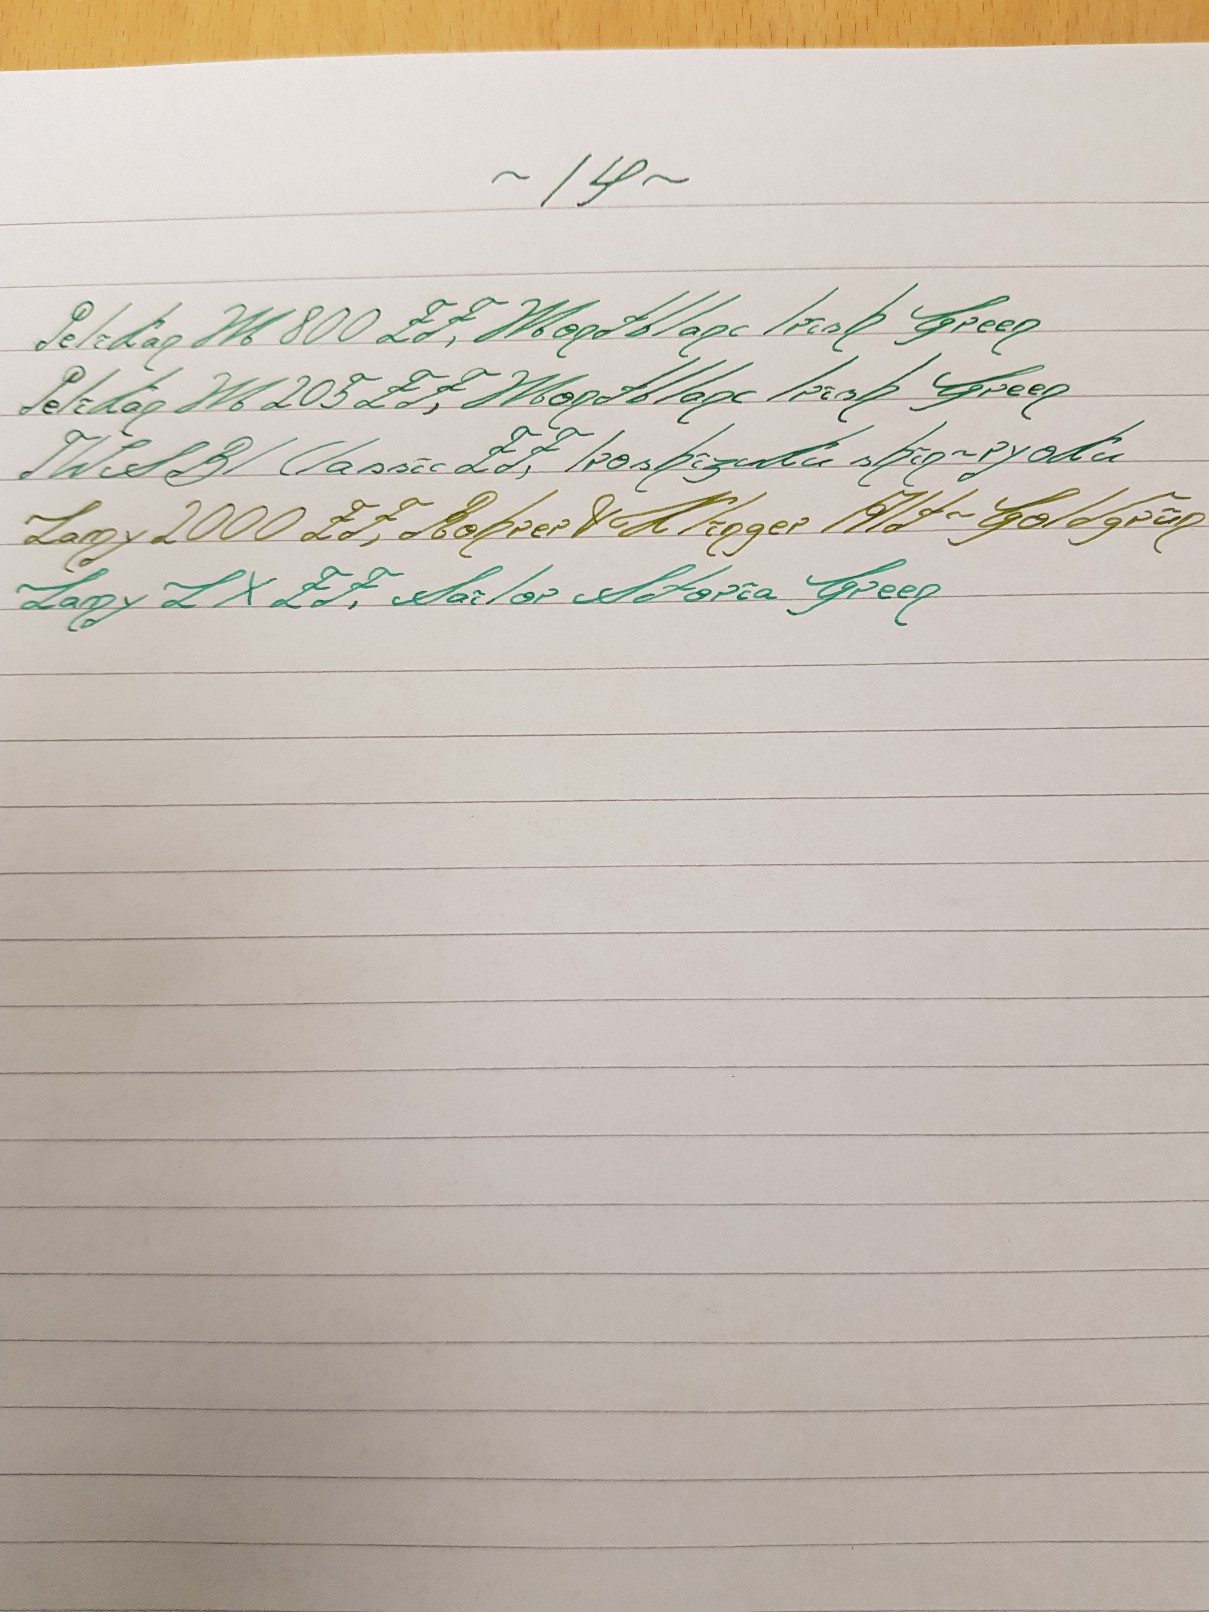 ~14~
Pelikan M800 EF, Montblanc Irish Green
Pelikan M205 EF, Montblanc Irish Green
TWSBI Classic EF, Iroshizuku shin~ryoku
Lamy 2000 EF, Rohrer & Klinger Alt~Goldgrün
Lamy LX EF, Sailor Storia Green